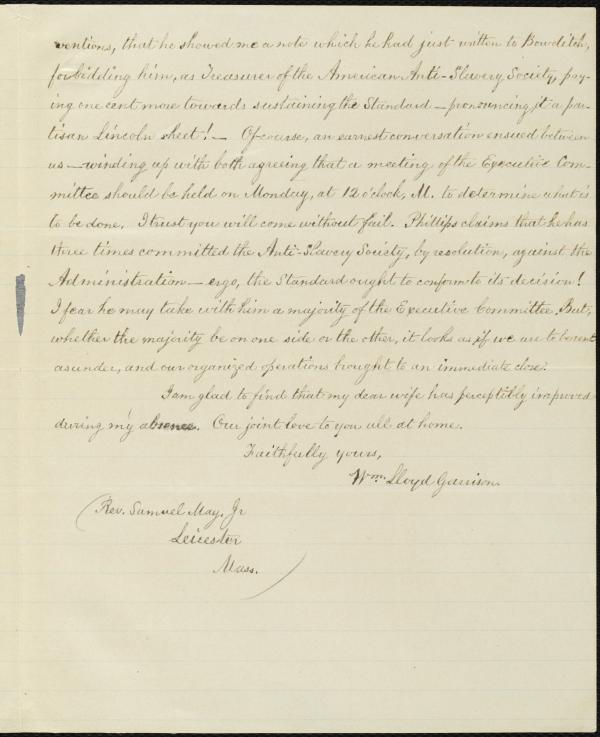 ventions, that he showed me a note which he had just written to Bowditch,
forbidding him, as Treasurer of the American Anti-Slavery Society, pay-
ing one cent more towards sustaining the Standard — pronouncing it a par-
tisan Lincoln sheet! — Of course, an earnest conversation ensued between
us — winding up with both agreeing that a meeting of the Executive Com-
mittee should be held on Monday, at 12 o'clock, M. to determine what is
to be done. I trust you will come without fail. Phillips claims that he has
three times committed the Anti-Slavery Society, by resolution, against the
Administration — ergo, the Standard ought to conform to its decision!
I fear he may take with him a majority of the Executive Committee. But,
whether the majority be on one side or the other, it looks as if we are to be rent
asunder, and our organized operations brought to an immediate close.
I am glad to find that my dear wife has perceptibly improved
during my absence. Our joint love to you all at home.
Faithfully yours,
Wm. Lloyd Garrison.
Rev. Samuel May, Jr
Leicester
Mass.